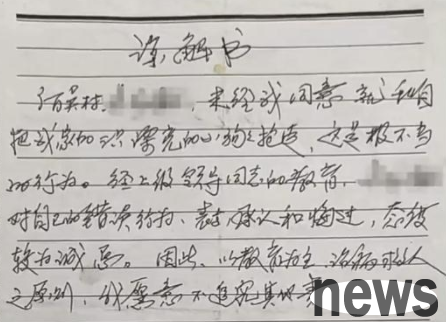 谅解书
未经我同意就私自
把我家的 漂亮的小狗 抢走，这是极不当
的行为。经上级领导同志的教育，
对自己的错误行为，表示承认和悔过，态度
较为诚恳。因此，以教育为主，治病救人
之原则，我愿意不追究其
news